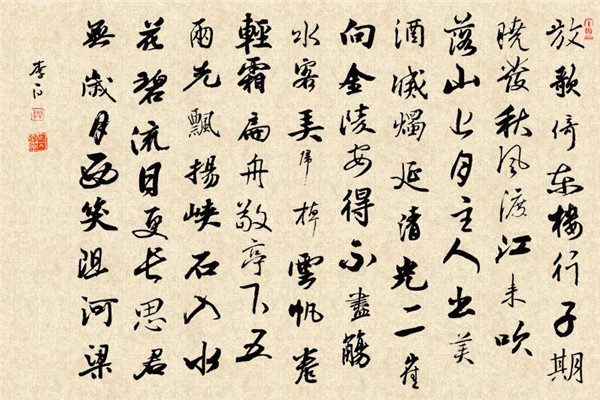 放歌倚东楼行子期
曉發秋風渡江来吹
落山上月主人出美
酒滅燭延清光二崔
向金陵安得不盡觴
水客弄帰棹雲帆卷
輕霜扁舟敬亭下五
兩先飄揚峡石入水
花碧流日更长思君
無歲月西笑阻河梁
李白